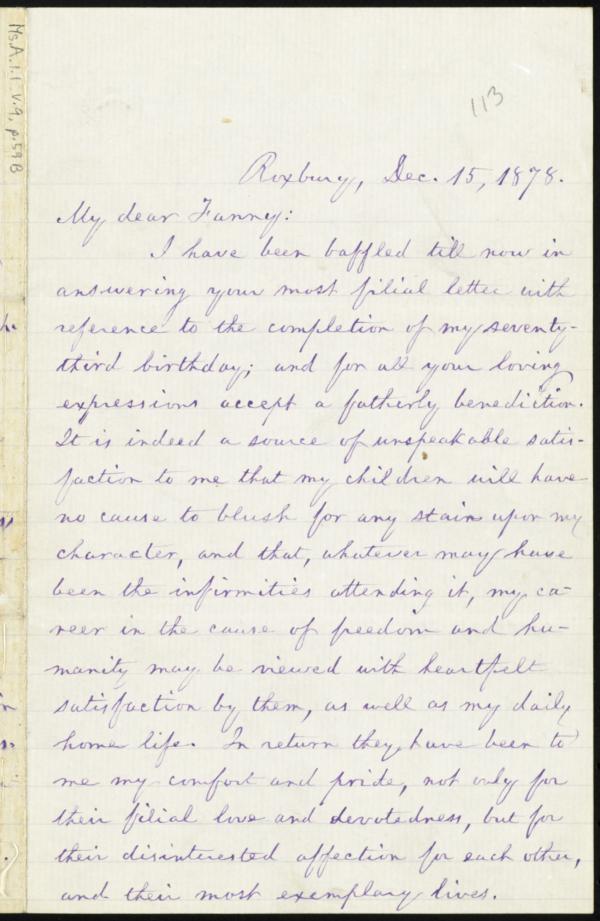 Ms.A.1.1 v.9, p.59B
113
Roxbury, Dec. 15, 1878.
My dear Fanny:
I have been baffled till now in
answering your most filial letter with
reference to the completion of my seventy-
third birthday; and for all your loving
expressions accept a fatherly benediction.
It is indeed a source of unspeakable satis-
faction to me that my children will have
no cause to blush for any stain upon my
character, and that, whatever may have
been the infirmities attending it, my ca-
reer in the cause of freedom and hu-
manity may be viewed with heartfelt
satisfaction by them, as well as my daily
home life. In return they have been to
me my comfort and pride, not only for
their filial love and devotedness, but for
their disinterested affection for each other,
and their most exemplary lives.